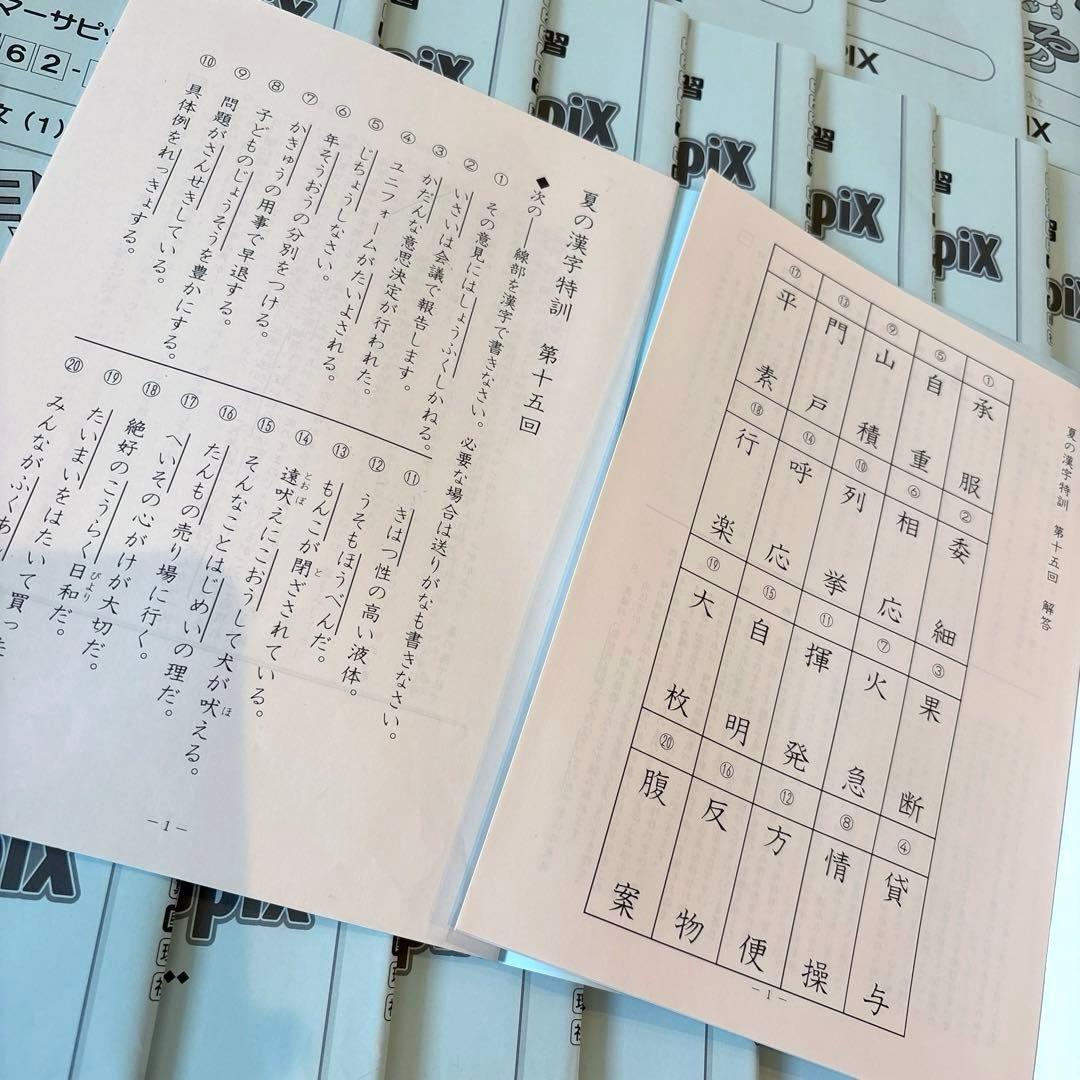 夏の漢字特訓　第十五回
◆次の――線部を漢字で書きなさい。必要な場合は送りがなも書きなさい。
① その意見にはしょうふくしかねる。
② いさいは会議で報告します。
③ かだんな意思決定が行われた。
④ ユニフォームがたいよされる。
⑤ じちょうしなさい。
⑥ 年そうおうの分別をつける。
⑦ かきゅうの用事で早退する。
⑧ 子どものじょうそうを豊かにする。
⑨ 問題がさんせきしている。
⑩ 具体例をれっきょする。
⑪ きはつ性の高い液体。
⑫ うそもほうべんだ。
⑬ もんこが閉ざされている。
⑭ 遠吠えにこおうして犬が吠える。
⑮ そんなことはじめいの理だ。
⑯ たんもの売り場に行く。
⑰ へいその心がけが大切だ。
⑱ 絶好のこうらく日和だ。
⑲ たいまいをはたいて買った
⑳ みんながふくあ
－1－
夏の漢字特訓　第十五回　解答
① 承服
② 委細
③ 果断
④ 貸与
⑤ 自重
⑥ 相応
⑦ 火急
⑧ 情操
⑨ 山積
⑩ 列挙
⑪ 揮発
⑫ 方便
⑬ 門戸
⑭ 呼応
⑮ 自明
⑯ 反物
⑰ 平素
⑱ 行楽
⑲ 大枚
⑳ 腹案
－1－
マーサピッ
62-
文(1)
習
piX
習
piX
習
piX
習
piX
piX
iX